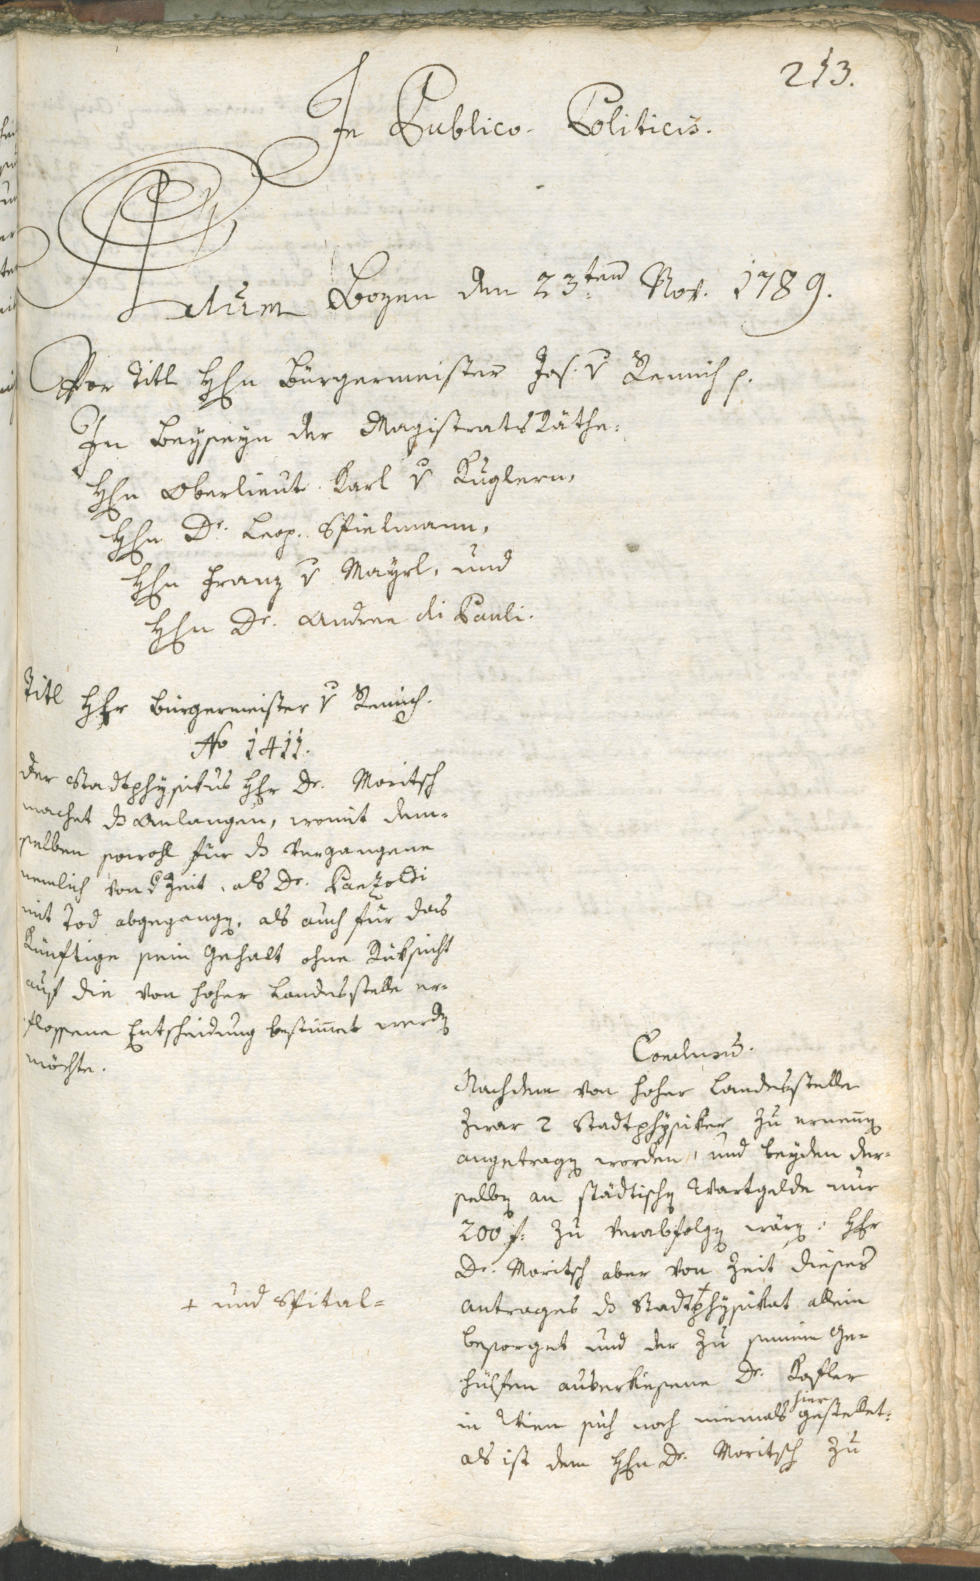 213.
In Publico-Politicis.
Actum Bozen den 23ten Nov. 1789.
Vor Titl Hhn Bürgermeister Jos. v Remich p.
In Beyseyn der Magistrats Räthe:
Hhn Oberlieut. Karl v Kuglern,
Hhn Dr. Leop. Spielmann,
Hhn Franz v Mayrl, und
Hhn Dr. Andree di Pauli.
Titl Hhr Bürgermeister v Remich.
No 1411.
Der Stadtphysikus Hhr Dr. Moritsch
machet ds Anlangen, womit dem-
selben sowohl für ds Vergangene
nemlich von d Zeit, als Dr. Panzoldi
mit Tod abgegangen, als auch für das
Künftige sein Gehalt ohne Rüksicht
auf die von hoher Landesstelle er-
flossene Entscheidung bestimmet werden
möchte.
Conclusum.
Nachdem von hoher Landesstelle
zwar 2 Stadtphysiker zu ernennen
angetragen worden, und beyden der-
selben an städtischen Wartgelde nur
200 f. zu verabfolgen wären: Hhr
Dr. Moritsch aber von Zeit dieses
Antrages ds Stadt+physikat allein
+ und Spital-
besorget und der zu seinem Ge-
hülfen auserkiesene Dr. Kofler
in Wien sich noch niemals hier gestellet:
als ist dem Hhn Dr. Moritsch zu